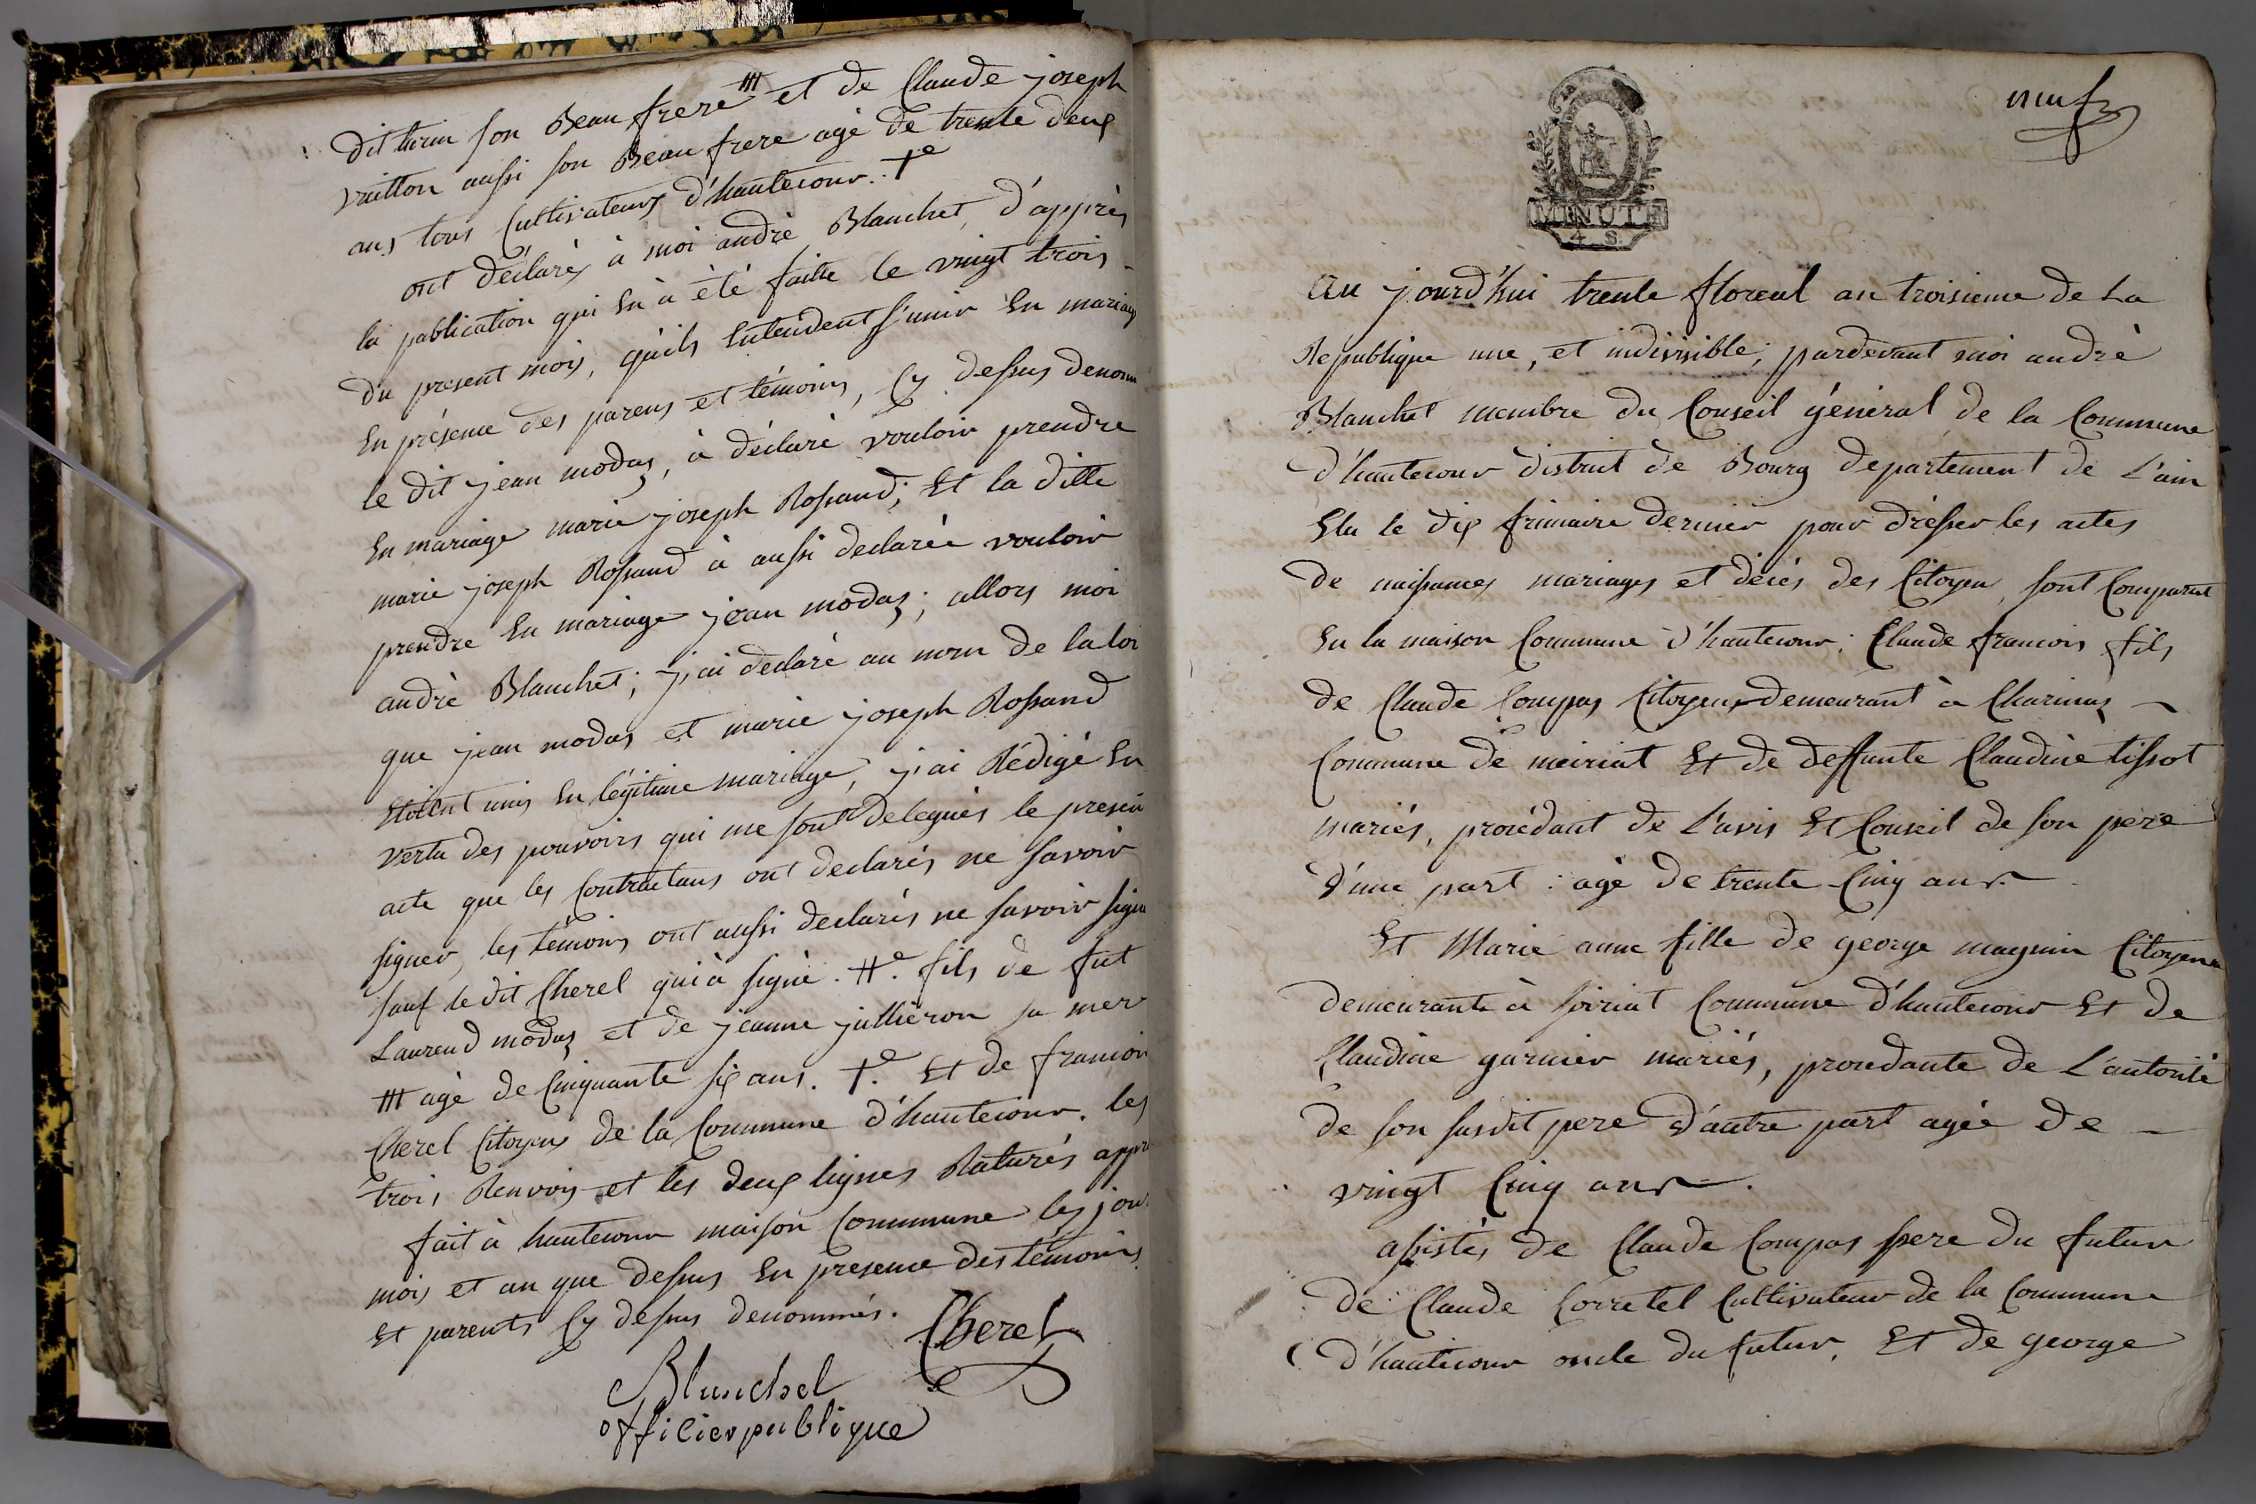 dit tirun son Beau frere ᚎ et de Claude joseph
vuitton aussi son Beau frere agé de trente deux
ans tous Cultivateurs d'hautecour. †e
ont déclarés à moi andré Blanchet, d'apprés
la publication qui En à été faitte le vingt trois
du present mois, qu'ils Entendent s'unir En mariage
En présence des parens et témoins, Cy dessus denom
le dit jean modas, à déclaré vouloir prendre
En mariage marie joseph Rossand; Et la ditte
marie joseph Rossand à aussi declarée vouloir
prendre En mariage jean modas; allors moi
andré Blanchet; j'ai déclaré au nom de la loi
que jean modas et marie joseph Rossand
Etoient unis En légitime mariage, j'ai Rédigé En
vertu des pouvoirs qui me sont delegués le presen
acte que les Contractans ont declarés ne savoir
signer, les témoins ont aussi declarés ne savoir signe
sauf le dit Cherel qui à signé. ††e. fils de fut
Laurend modas et de jeanne jullieron sa mer
agé de Cinquante six ans. †.e Et de francois
Cherel Citoyens de la Commune d'hautecour. les
trois Renvois et les deux lignes Raturés appr
fait à hautecour maison Commune les jour
mois et an que dessus En presence des témoins
Et parents Cy dessus denommés.
Cherel
Blanchet
officier publique
neuf
MINUTE
4 S.
Au jourd'hui trente floreal an troisieme de La
Republique une, et indivisible; pardevant moi andré
Blanchet membre du Conseil général de la Commune
d'hautecour district de Bourg departement de L'ain
Elu le dix frimaire dernier pour drésser les actes
de naissances mariages et décés des Citoyen, sont Comparut
En la maison Commune d'hautecour; Claude francois fils
de Claude Compas Citoyens demeurant à Charinas
Commune de meiriat Et de deffunte Claudine tissot
mariés, procédant de L'avis Et Conseil de son pere
d'une part: agé de trente Cinq ans.
Et Marie anne fille de george magnin Citoyens
demeurante à soiriat Commune d'hautecour Et de
Claudine garnier mariés, procedante de L'autorité
de son susdit pere d'autre part agée de
vingt Cinq ans.
assistés de Claude Compas pere du futur
de Claude Corretel Cultivateur de la Commune
d'hautecour oncle du futur, Et de george